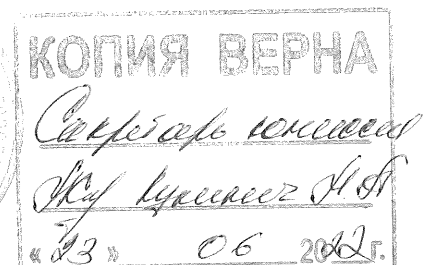 КОПИЯ ВЕРНА
Секретарь комиссии
Н А
« 23 » 06 2022 г.